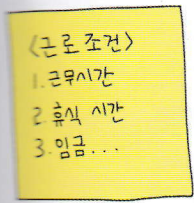 <근로 조건>
1. 근무시간
2. 휴식 시간
3. 임금...